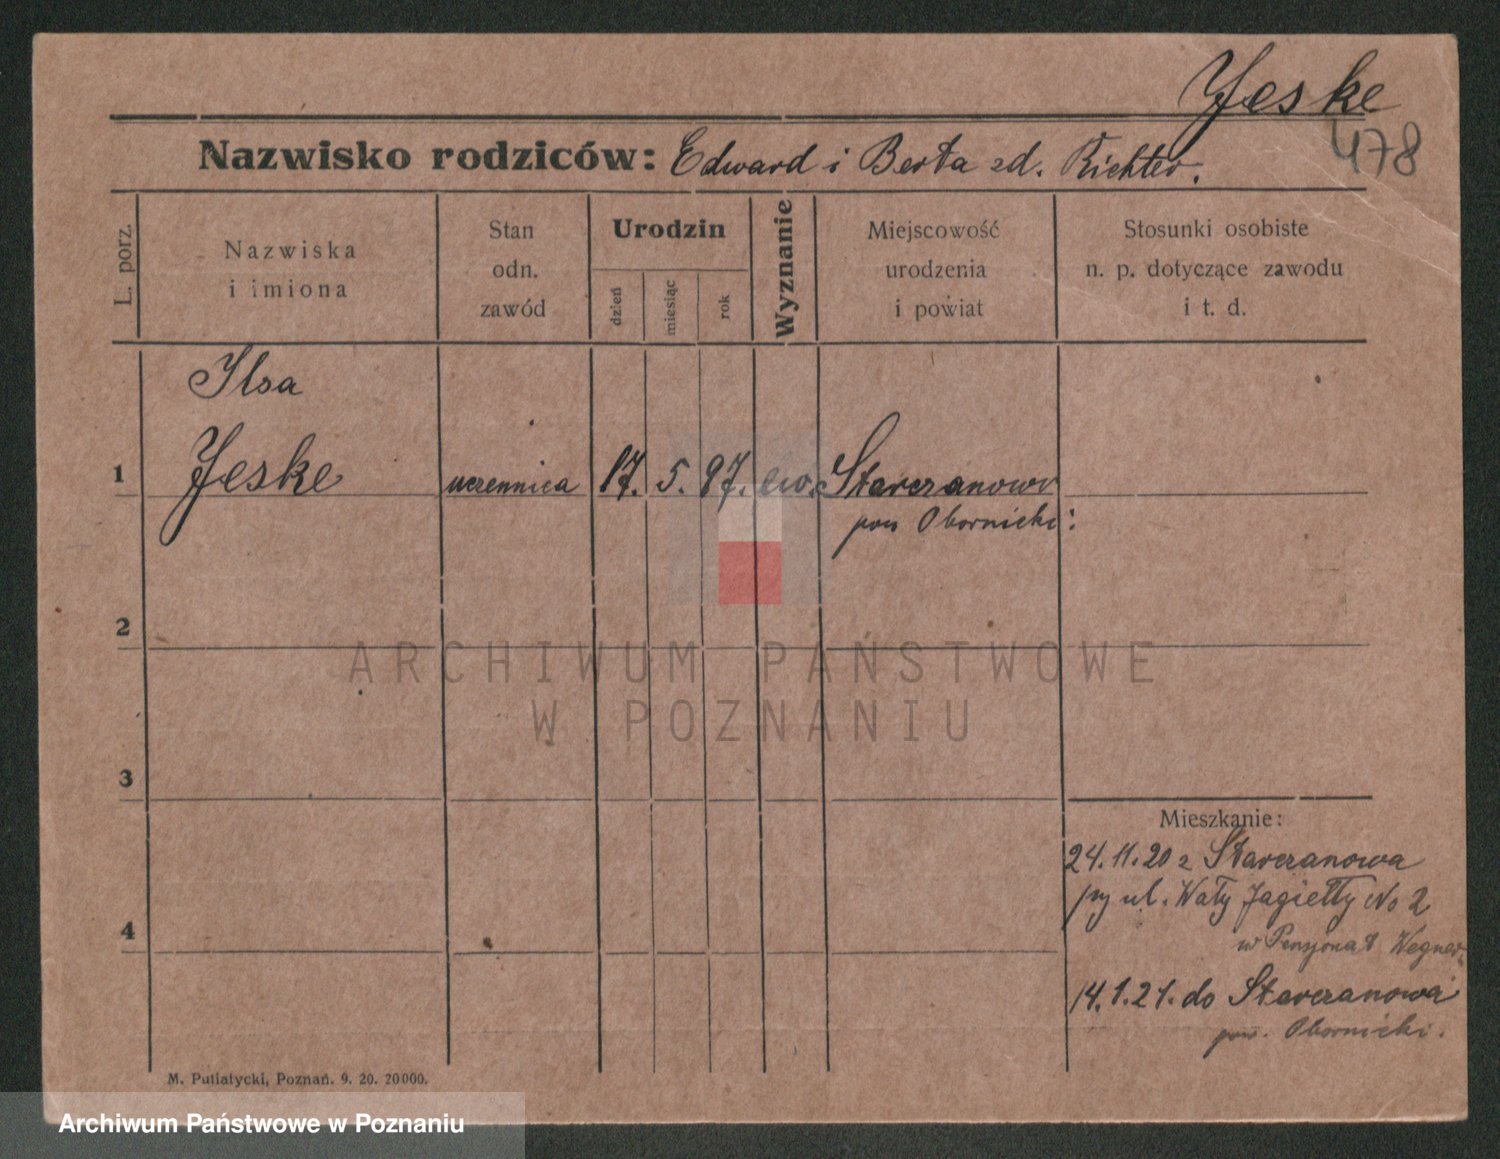 Jeske
478
Nazwisko rodziców: Edward i Berta zd. Richter.
L. porz.
Nazwiska
i imiona
Stan
odn.
zawód
Urodzin
dzień
miesiąc
rok
Wyznanie
Miejscowość
urodzenia
i powiat
Stosunki osobiste
n. p. dotyczące zawodu
i t. d.
Ilsa
1 Jeske uczennica 17. 5. 97. ew. Starczanowo
pow Obornicki:
2
ARCHIWUM PAŃSTWOWE
W POZNANIU
3
Mieszkanie:
24.11.20 z Starczanowa
py ul. Wały Jagiełły No 2
4
w Pensjonat Wegner.
14.1.21. do Starczanowa
pow. Obornicki.
M. Putiatycki, Poznań. 9. 20. 20000.
Archiwum Państwowe w Poznaniu